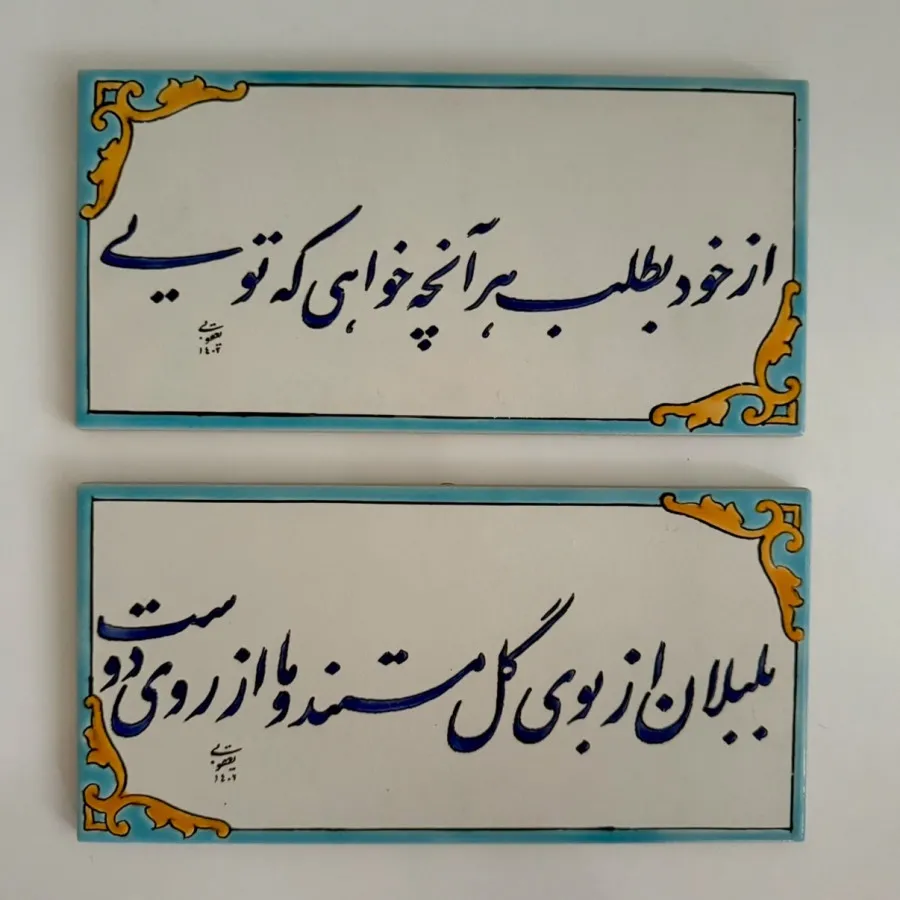 از خود بطلب هر آنچه خواهی که تویی
یعقوبی
۱٤۰۲
بلبلان از بوی گل مستند و ما از روی دوست
یعقوبی
۱٤۰۲